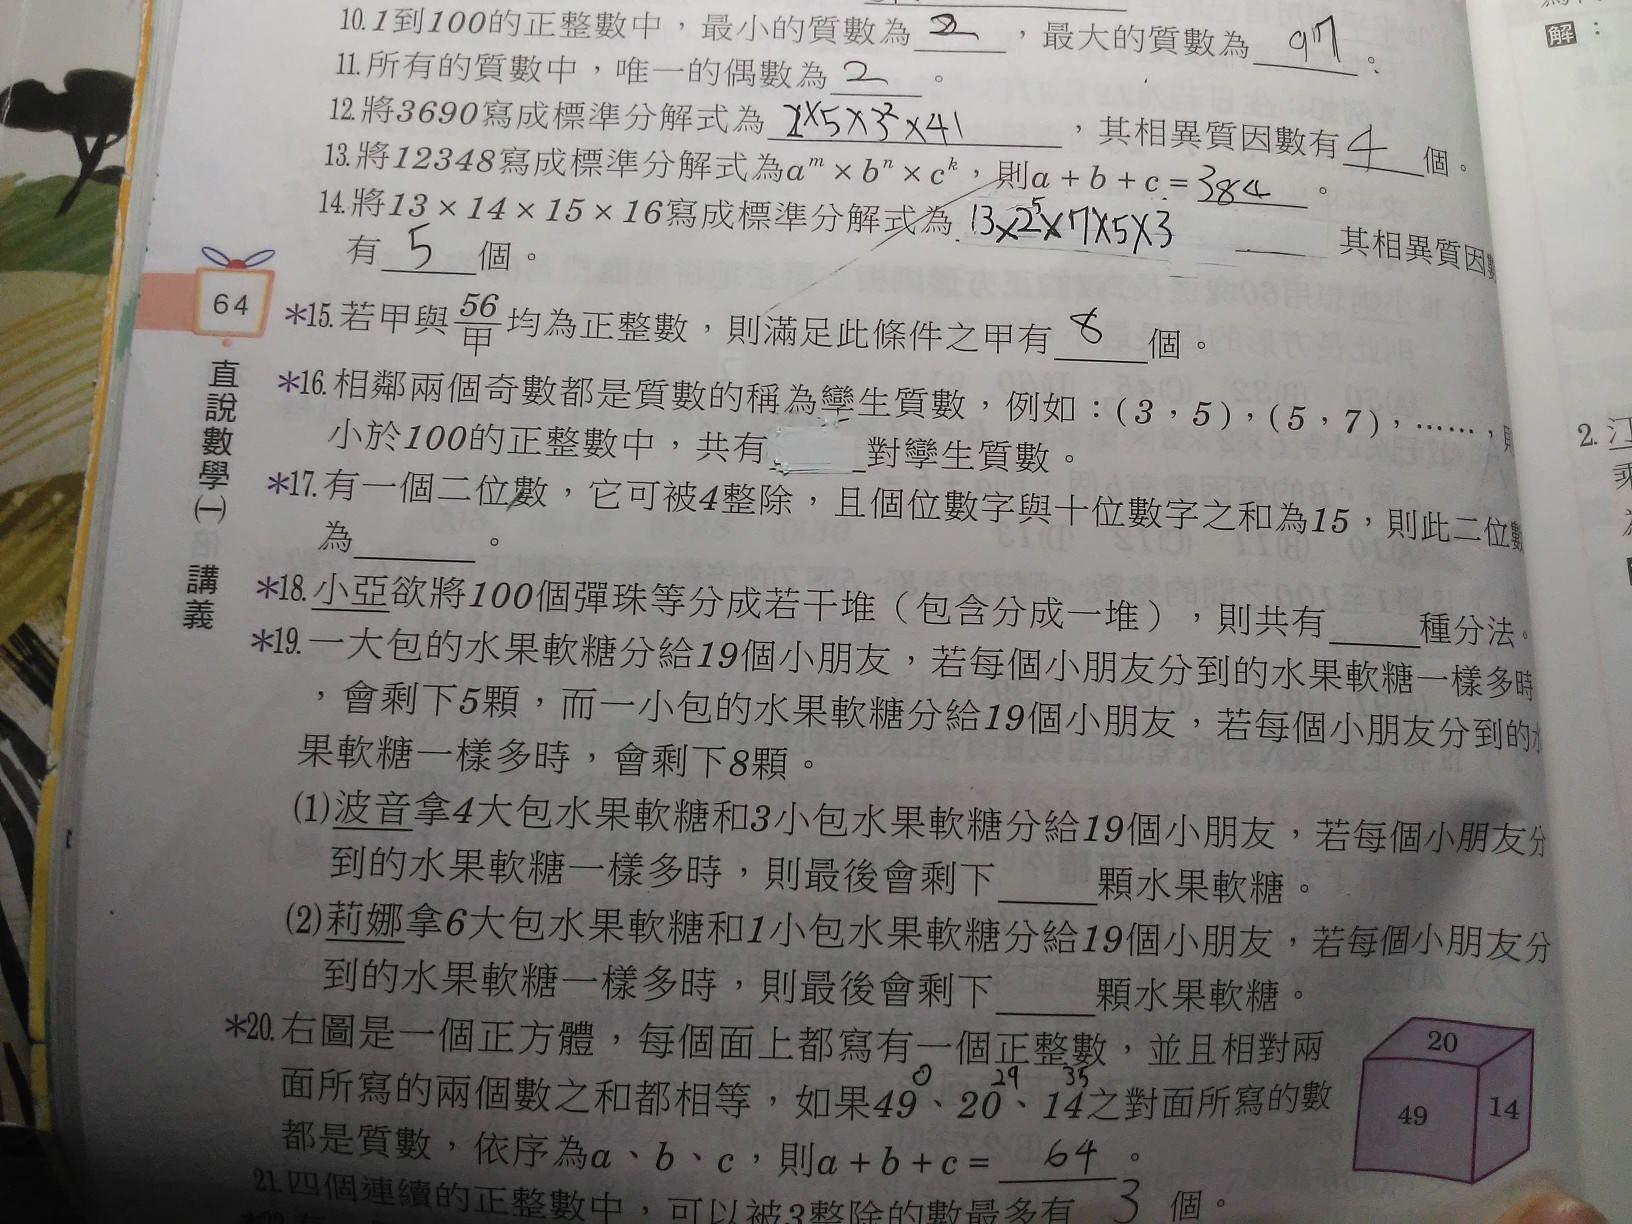 10.1到100的正整數中，最小的質數為 2 ，最大的質數為 97 。
11.所有的質數中，唯一的偶數為 2 。
12.將3690寫成標準分解式為 2×5×3²×41 ，其相異質因數有 4 個。
13.將12348寫成標準分解式為aᵐ×bⁿ×cᵏ，則a+b+c= 384 。
14.將13×14×15×16寫成標準分解式為 13×2⁵×7×5×3 其相異質因數
有 5 個。
64
*15.若甲與56/甲均為正整數，則滿足此條件之甲有 8 個。
*16.相鄰兩個奇數都是質數的稱為孿生質數，例如：(3，5)，(5，7)，……，則
小於100的正整數中，共有____對孿生質數。
*17.有一個二位數，它可被4整除，且個位數字與十位數字之和為15，則此二位數
為______。
*18.小亞欲將100個彈珠等分成若干堆（包含分成一堆），則共有____種分法。
*19.一大包的水果軟糖分給19個小朋友，若每個小朋友分到的水果軟糖一樣多時
，會剩下5顆，而一小包的水果軟糖分給19個小朋友，若每個小朋友分到的水
果軟糖一樣多時，會剩下8顆。
(1)波音拿4大包水果軟糖和3小包水果軟糖分給19個小朋友，若每個小朋友分
到的水果軟糖一樣多時，則最後會剩下____顆水果軟糖。
(2)莉娜拿6大包水果軟糖和1小包水果軟糖分給19個小朋友，若每個小朋友分
到的水果軟糖一樣多時，則最後會剩下____顆水果軟糖。
*20.右圖是一個正方體，每個面上都寫有一個正整數，並且相對兩
0 29 35
面所寫的兩個數之和都相等，如果49、20、14之對面所寫的數
都是質數，依序為a、b、c，則a+b+c= 64 。
20
49
14
21.四個連續的正整數中，可以被3整除的數最多有 3 個。
直說數學(一)
講義
解：
2.江
乘